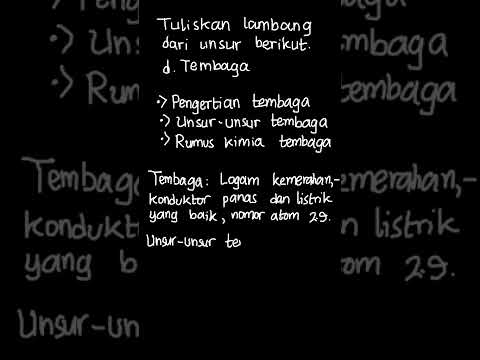 Tuliskan lambang
dari unsur berikut.
d. Tembaga
·> Pengertian tembaga
·> Unsur-unsur tembaga
·> Rumus kimia tembaga
Tembaga: Logam kemerahan,-
konduktor panas dan listrik
yang baik, nomor atom 29.
Unsur-unsur te